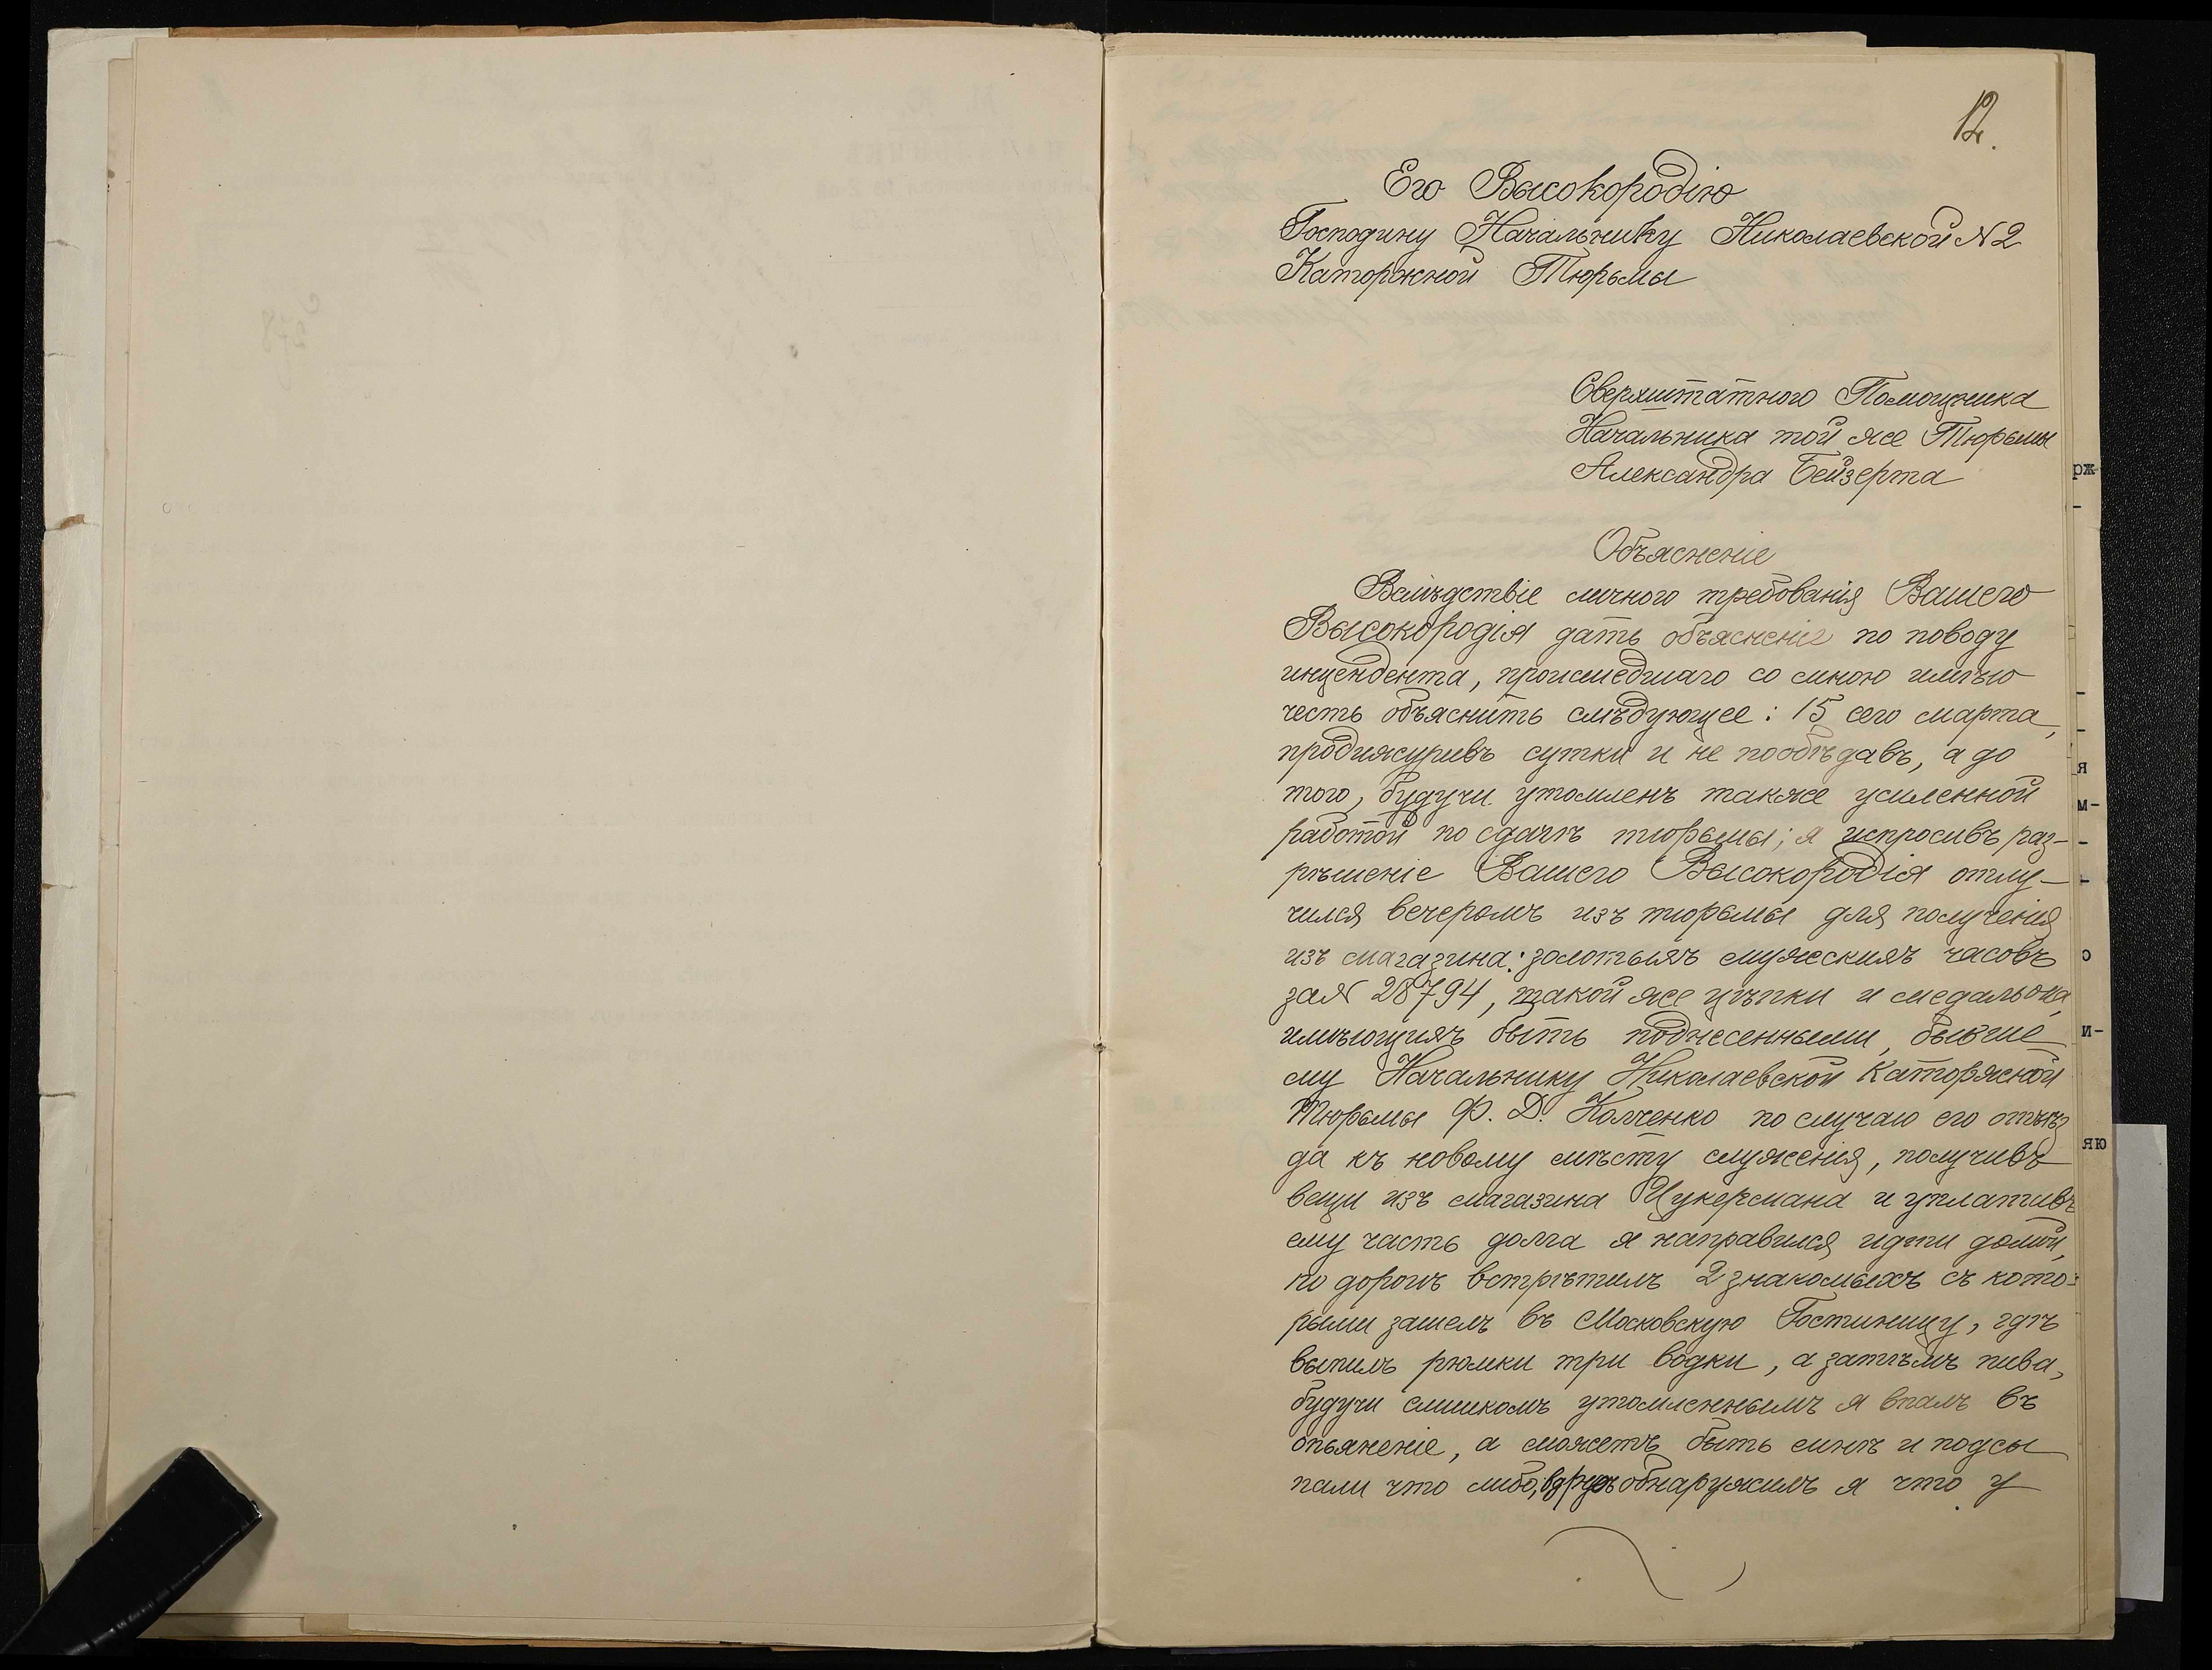 12.
Его Высокородію
Господину Начальнику Николаевской № 2
Каторжной Тюрьмы
Сверхштатного Помощника
Начальника той же Тюрьмы
Александра Бейзерта
Объясненіе
Вслѣдствіе личного требованія Вашего
Высокородія дать объясненіе по поводу
инцендента, происшедшаго со мною имѣю
честь объяснить слѣдующее: 15 сего марта,
продижуривъ сутки и не пообѣдавъ, а до
того, будучи утомленъ также усиленной
работой по сдачѣ тюрьмы; я испросивъ раз-
рѣшеніе Вашего Высокородія отлу-
чился вечеромъ изъ тюрьмы для полученія
изъ магазина: золотыхъ мужскихъ часовъ
за № 28794, такой же цѣпки и медальона,
имѣющихъ быть поднесенными, бывше
му Начальнику Николаевской Каторжной
Тюрьмы Ф. Д. Колченко по случаю его отъѣз
да къ новому мѣсту служенія, получивъ
вещи изъ магазина Цукермана и уплативъ
ему часть долга я направился идти домой,
по дорогѣ встрѣтилъ 2 знакомыхъ съ кото-
рыми зашелъ въ Московскую Гостиницу, гдѣ
выпилъ рюмки три водки, а затѣмъ пива,
будучи слишкомъ утомленнымъ я впалъ въ
опьяненіе, а можетъ быть мнѣ и подсы
пали что либо, вдругъ обнаружилъ я что у
рж-
-
-
-
я
м-
-
-
о
и-
яю